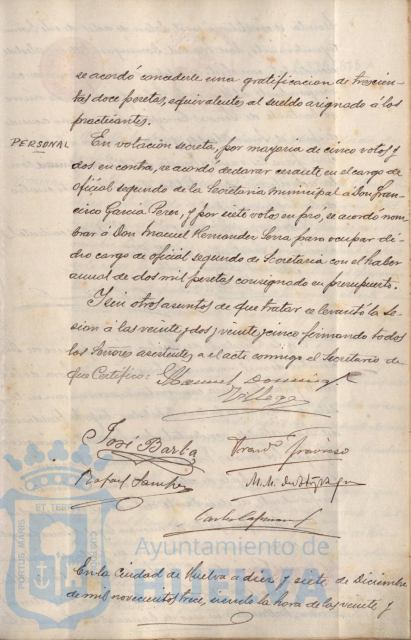 se acordó concederle una gratificacion de trescien-
tas doce pesetas, equivalente al sueldo asignado á los
practicantes.
PERSONAL
En votación secreta, por mayoria de cinco votos y
dos en contra, se acordo declarar cesante en el cargo de
oficial segundo de la Secretaria municipal á Don Fran-
cisco Garcia Perez, y por siete votos en pró, se acordo nom-
brar á Don Manuel Hernandez Soria para ocupar di-
cho cargo de oficial segundo de Secretaria con el haber
anual de dos mil pesetas consignado en presupuesto.
I sin otros asuntos de que tratar se levantó la se-
sion á las veinte y dos y veinte y cinco firmando todos
los Señores asistentes a el acto conmigo el Secretario de
que Certifico:
Manuel Dominguez
José Barba
Rafael Sanchez
Ayuntamiento de
HUELVA
PORTUS MARIS
ET TERRAE
CUSTODIA
En la ciudad de Huelva a diez y siete de Diciembre
de mil novecientos trece, siendo la hora de las veinte y